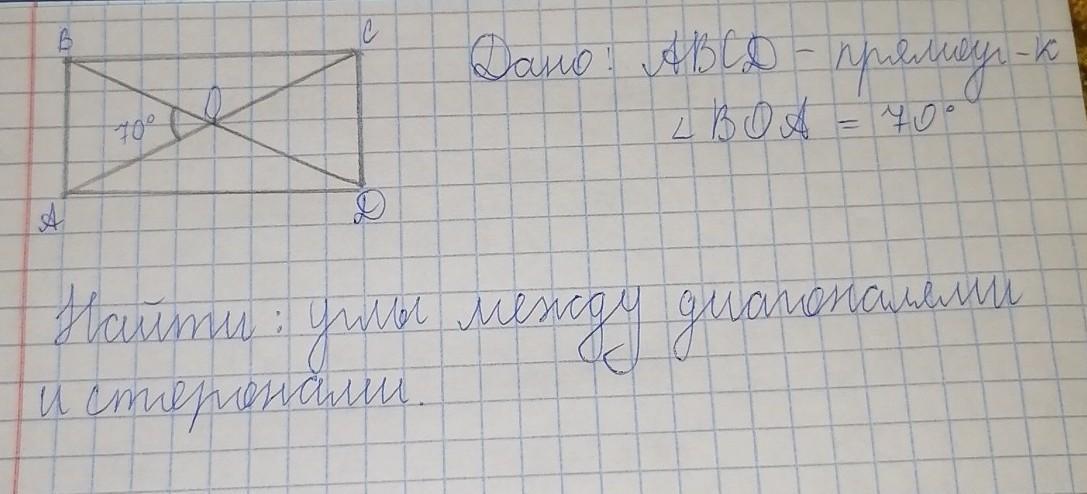 B
C
O
70°
A
D
Дано: ABCD - прямоуг-к
∠BOA = 70°
Найти: углы между диагоналями
и сторонами.